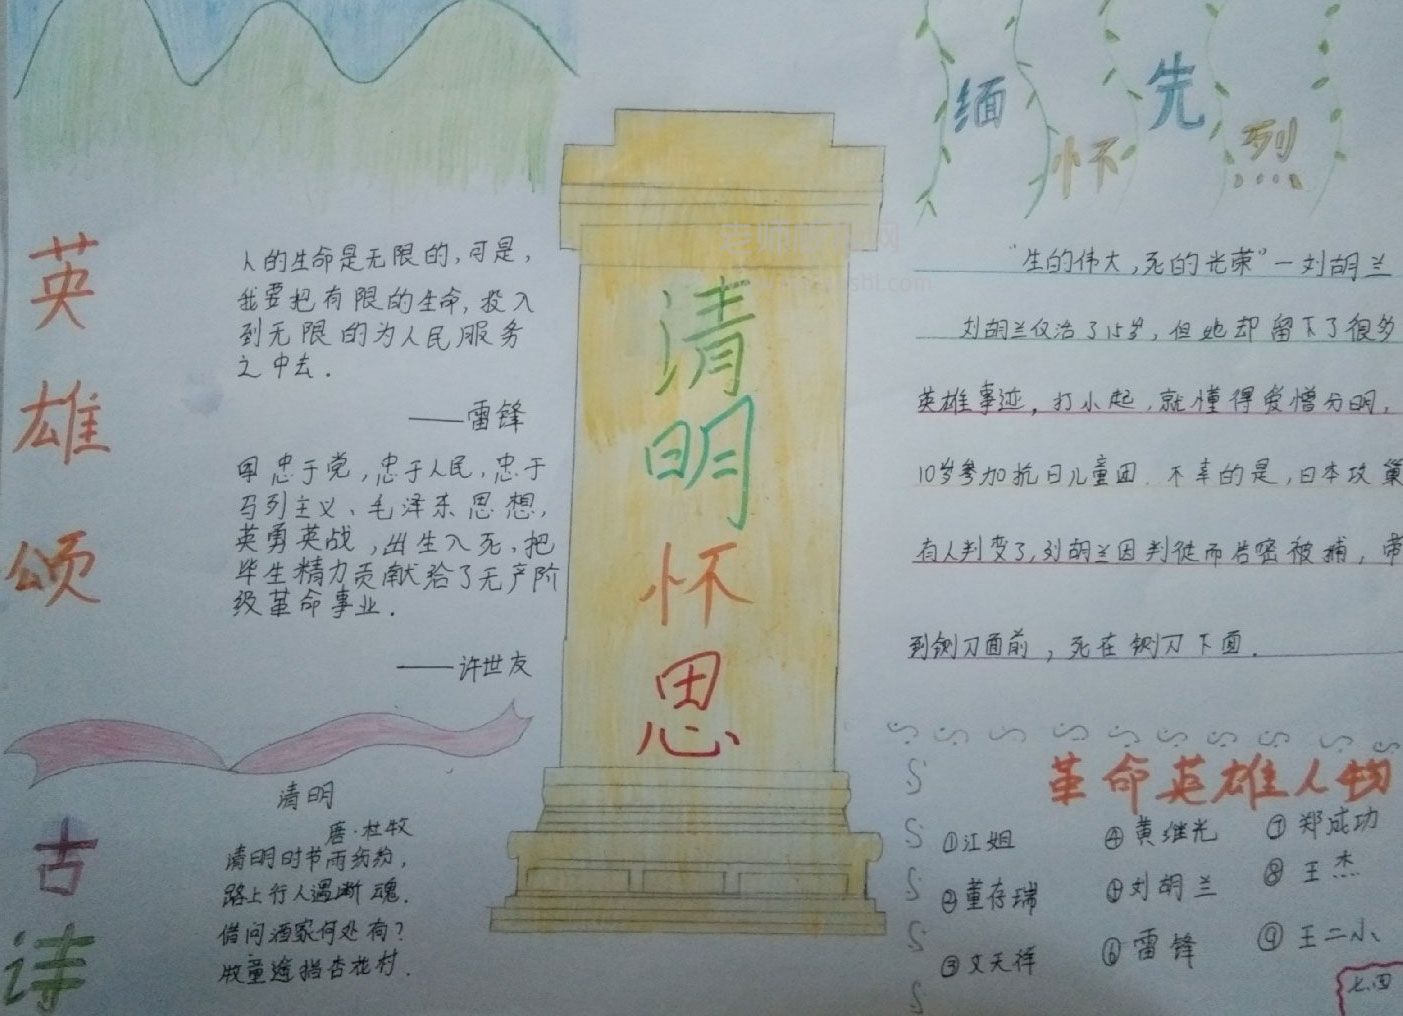 缅怀先烈
英雄颂
人的生命是无限的,可是,
我要把有限的生命,投入
到无限的为人民服务
之中去.
——雷锋
忠于党,忠于人民,忠于
马列主义、毛泽东思想,
英勇英战,出生入死,把
毕生精力贡献给了无产阶
级革命事业.
——许世友
清明怀思
“生的伟大,死的光荣”—刘胡兰
刘胡兰仅活了15岁,但她却留下了很多
英雄事迹,打小起,就懂得爱憎分明,
10岁参加抗日儿童团.不幸的是,日本攻巢
有人判变了,刘胡兰因判徒而告密被捕,带
到铡刀面前,死在铡刀下面.
古诗
清明
唐·杜牧
清明时节雨纷纷,
路上行人遇断魂.
借问酒家何处有?
牧童遥指杏花村.
革命英雄人物
①江姐
②董存瑞
③文天祥
④黄继光
刘胡兰
⑥雷锋
⑦郑成功
⑧王杰
⑨王二小
七.四